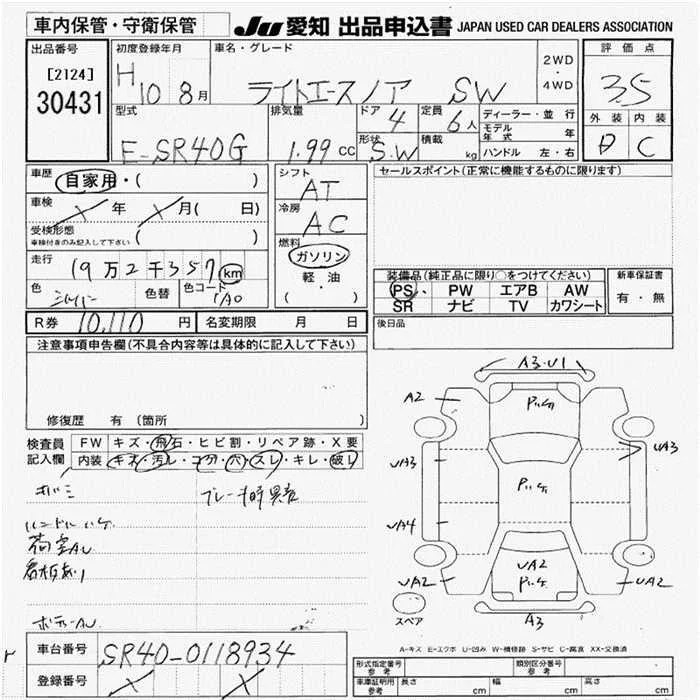 車内保管・守衛保管
JU 愛知 出品申込書 JAPAN USED CAR DEALERS ASSOCIATION
出品番号
[2124]
30431
初度登録年月
H 10 8月
車名・グレード
ライトエースノア SW
2WD
・
4WD
評価点
3.5
外装 内装
C
型式
E-SR40G
排気量
1.99 cc
ドア
4
形状
S.W
定員
6人
積載
kg
ディーラー・並行
モデル年式 年
ハンドル 左・右
車歴
自家用・( )
車検
年 月( 日)
受検形態
車検付きのみ記入して下さい ( )
走行
19万2千357 km
色
シルバー
色替
色コード
1A0
シフト
AT
冷房
AC
燃料
ガソリン
軽・油
・
( )
セールスポイント(正常に機能するものに限ります)
装備品(純正品に限り○をつけてください)
PS PW エアB AW
SR ナビ TV カワシート
新車保証書
有・無
後日品
R券 10,110 円 名変期限 月 日
注意事項申告欄(不具合内容等は具体的に記入して下さい)
修復歴 有(箇所 )
検査員
記入欄
FW キズ・飛石・ヒビ割・リペア跡・X要
内装 キズ・汚レ・コゲ・穴・スレ・キレ・破レ
ブレーキ時異音
ハンドル いケ
荷室AU
看板あり
ボディーAU
A3・U1
A2
UA3
UA3
UA4
UA2
UA2
UA2
A3
スペア
A-キズ E-エクボ U-凹み W-補修跡 S-サビ C-腐食 XX-交換済
車台番号
SR40-0118934
登録番号
形式指定番号
参考
類別区分番号
参考
車庫証明用
参考
長さ cm 幅 cm 高さ cm